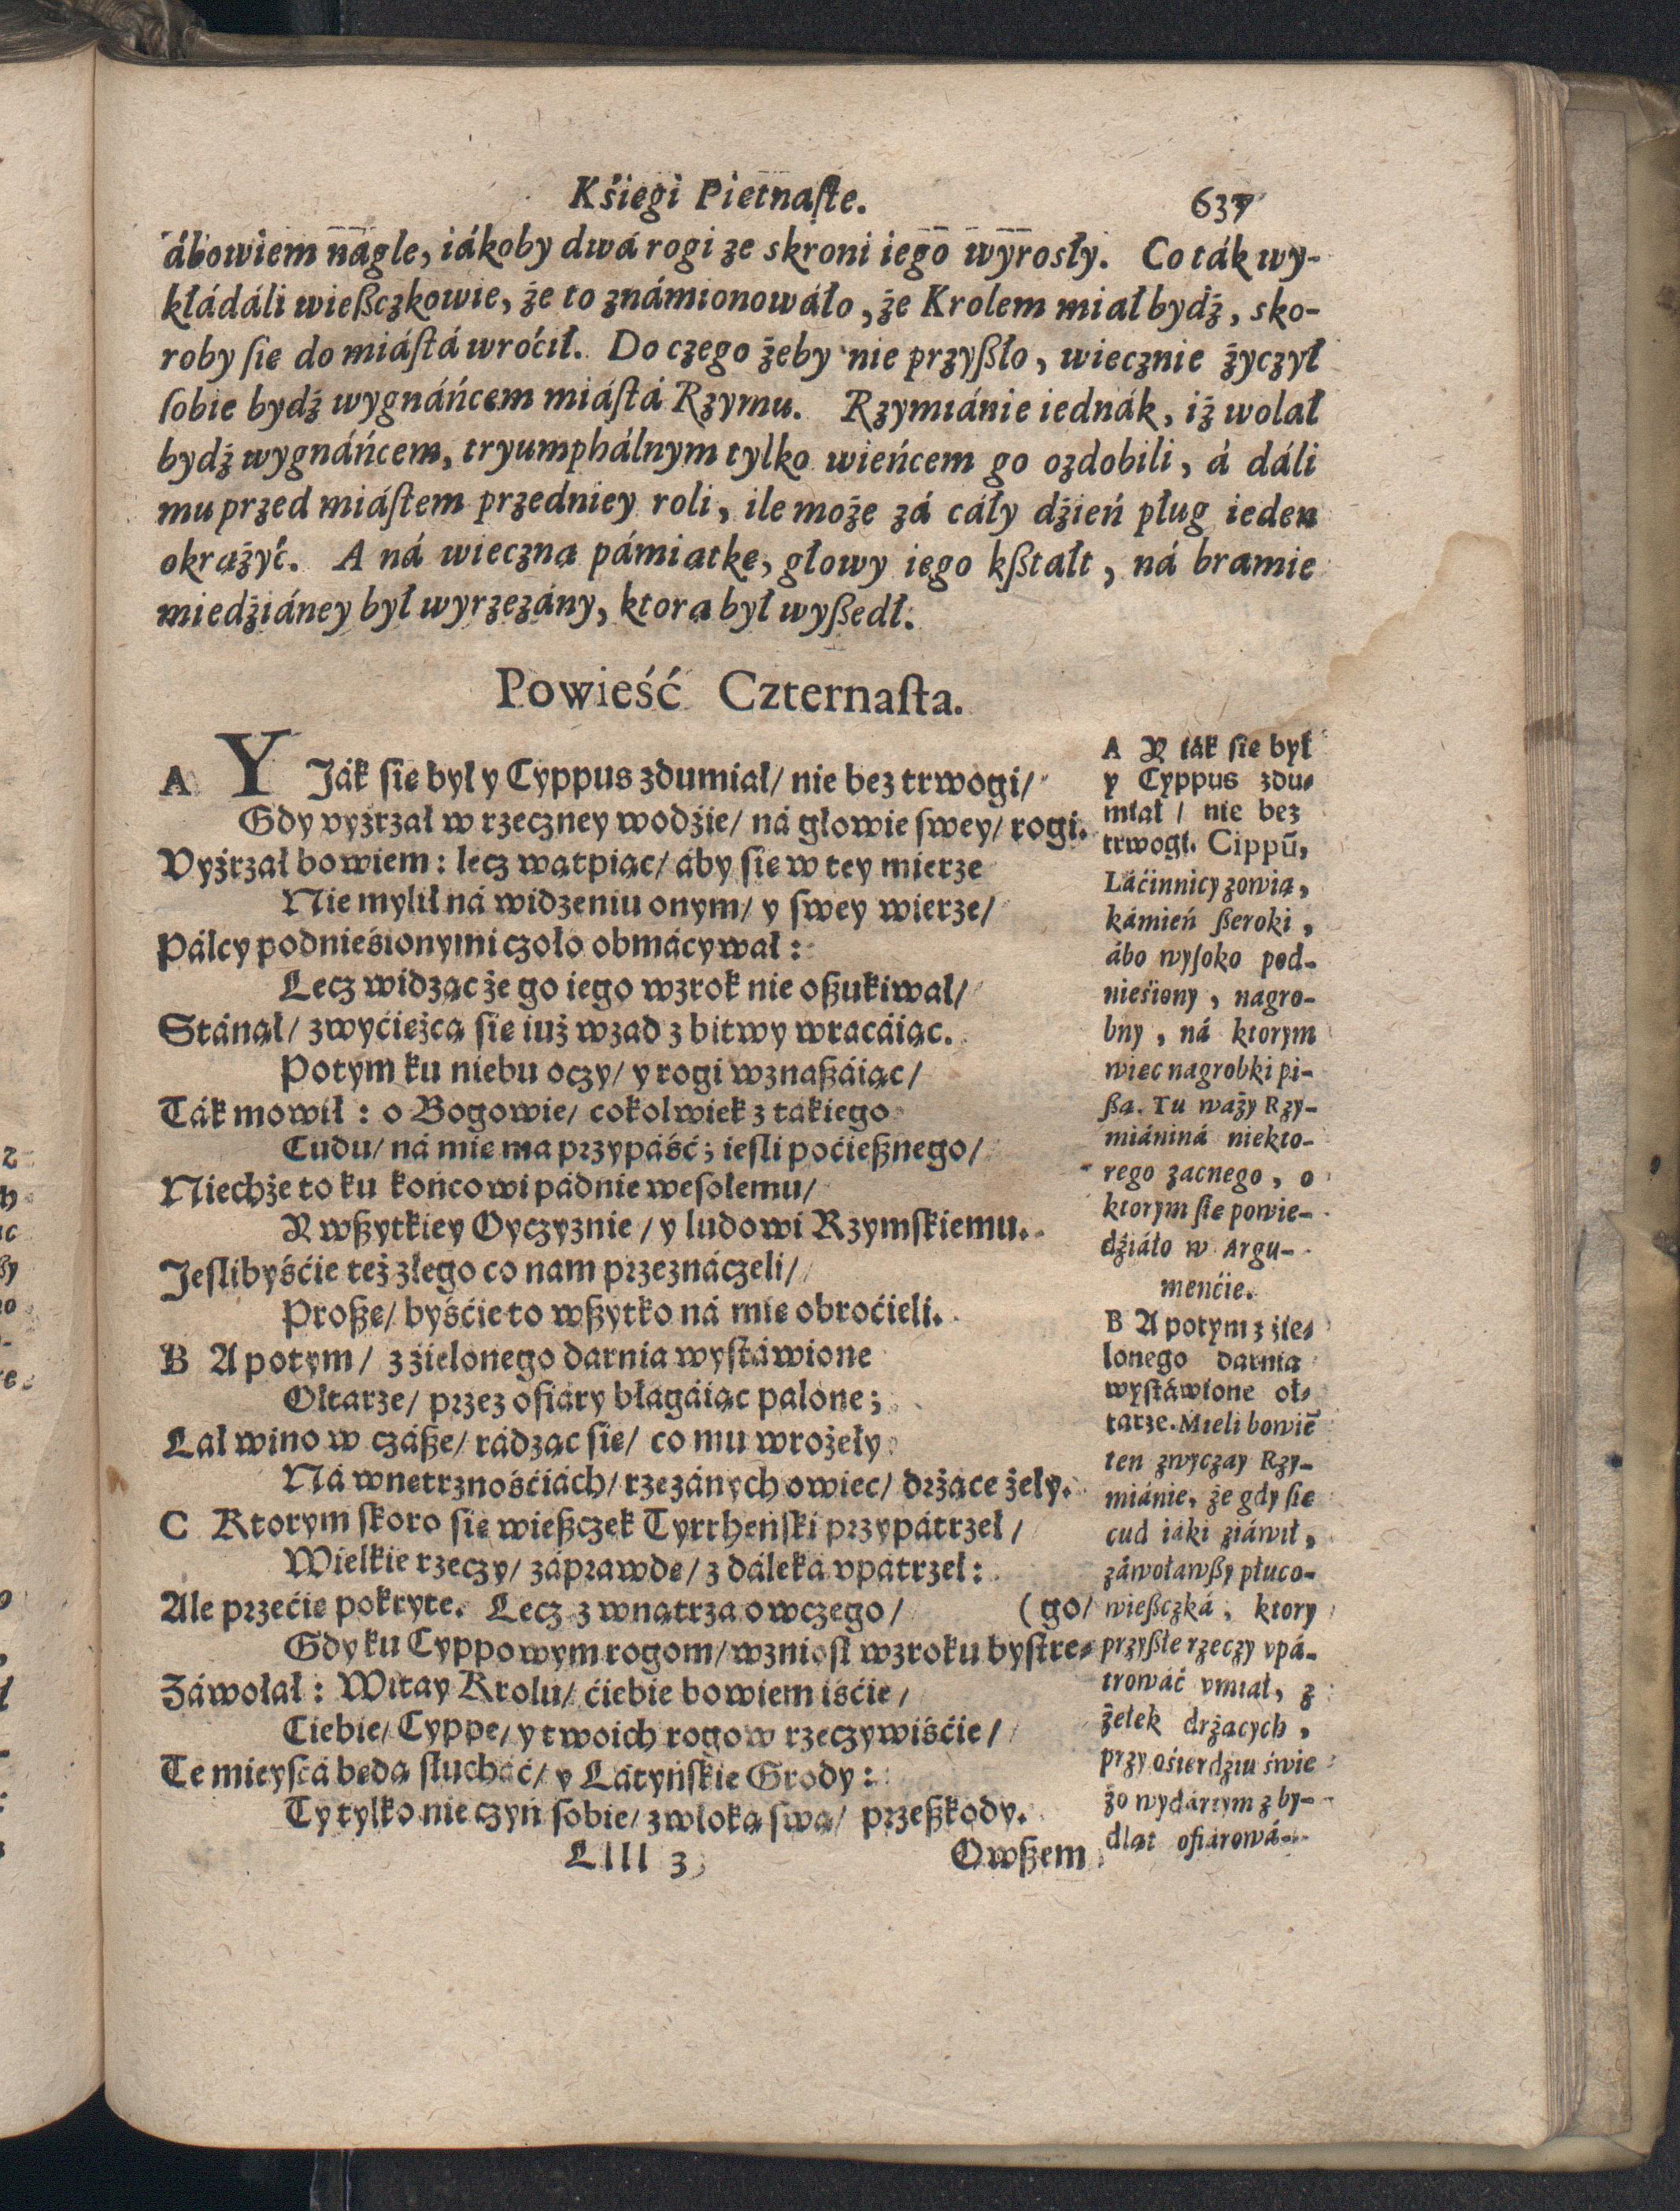 Kśiegi Pietnaſte. 637
ábowiem nágle, iákoby dwá rogi ze skroni iego wyrosły. Co ták wy-
kłádáli wießczkowie, że to známionowáło, że Krolem miał bydź, sko-
roby ſie do miáſtá wroćił. Do czego żeby nie przyßło, wiecznie życzył
ſobie bydź wygnáńcem miáſtá Rzymu. Rzymiánie iednák, iż wolał
bydź wygnáńcem, tryumphálnym tylko wieńcem go ozdobili, á dáli
mu przed miáſtem przedniey roli, ile może zá cáły dźień pług ieden
okrążyć. A ná wieczną pámiatke, głowy iego kßtałt, ná bramie
miedźiáney był wyrzezány, ktorą był wyßedł.
Powieść Czternaſta.
A Y Ják ſie był y Cyppus zdumiał/ nie bez trwogi/
Gdy vyźrzał w rzeczney wodźie/ ná głowie ſwey/ rogi.
Vyźrzał bowiem: lecz wątpiąc/ áby ſie w tey mierze
Nie mylił ná widzeniu onym/ y ſwey wierze/
Pálcy podnieśionymi czoło obmácywał:
Lecz widząc że go iego wzrok nie oßukiwał/
Stánął/ zwyćieżcą ſie iuż wzad z bitwy wracáiąc.
Potym ku niebu oczy/ y rogi wznaßáiąc/
Ták mowił: o Bogowie/ cokolwiek z takiego
Cudu/ ná mie ma przypáść; ieſli poćießnego/
Niechże to ku końcowi pádnie weſołemu/
Y wßytkiey Oyczyznie/ y ludowi Rzymſkiemu.
Jeſlibyśćie też złego co nam przeznáczeli/
Proße/ byśćie to wßytko ná mie obroćieli.
B A potym/ z źielonego darnia wyſtáwione
Ołtarze/ przez ofiáry błagáiąc palone;
Lał wino w czáße/ rádząc ſie/ co mu wrożeły
Ná wnetrznośćiách/ rzezánych owiec/ drżące żeły.
C Ktorym ſkoro ſie wießczek Tyrrheńſki przypátrzeł/
Wielkie rzeczy/ záprawde/ z dáleká vpátrzeł:
Ale przećie pokryte. Lecz z wnątrza owczego/ (go/
Gdy ku Cyppowym rogom/ wznioſł wzroku byſtre-
Záwołał: Witay Krolu/ ćiebie bowiem iśćie/
Ciebie/ Cyppe/ y twoich rogow rzeczywiśćie/
Te mieyſcá będą słucháć/ y Látyńſkie Grody:
Ty tylko nie czyń ſobie/ zwłoką ſwą/ przeßkody.
Llll 3 Owßem
A Y iák ſie był
y Cyppus zdu-
miał/ nie bez
trwogi. Cippū,
Láćinnicy zowią,
kámień ßeroki,
ábo wyſoko pod-
nieśiony, nagro-
bny, ná ktorym
wiec nagrobki pi-
ßą. Tu waży Rzy-
miániná niekto-
rego zacnego, o
ktorym ſie powie-
dźiáło w Argu-
menćie.
B A potym z źie-
lonego darnia
wyſtáwione oł-
tarze. Mieli bowiē
ten zwyczay Rzy-
miánie, że gdy ſie
cud iáki ziáwił,
záwoławßy płuco-
wießczká, ktory
przyßłe rzeczy vpá-
trowáć vmiał, z
żełek drżących,
przy ośierdźiu świe
żo wydártym z by-
dląt ofiárowá-